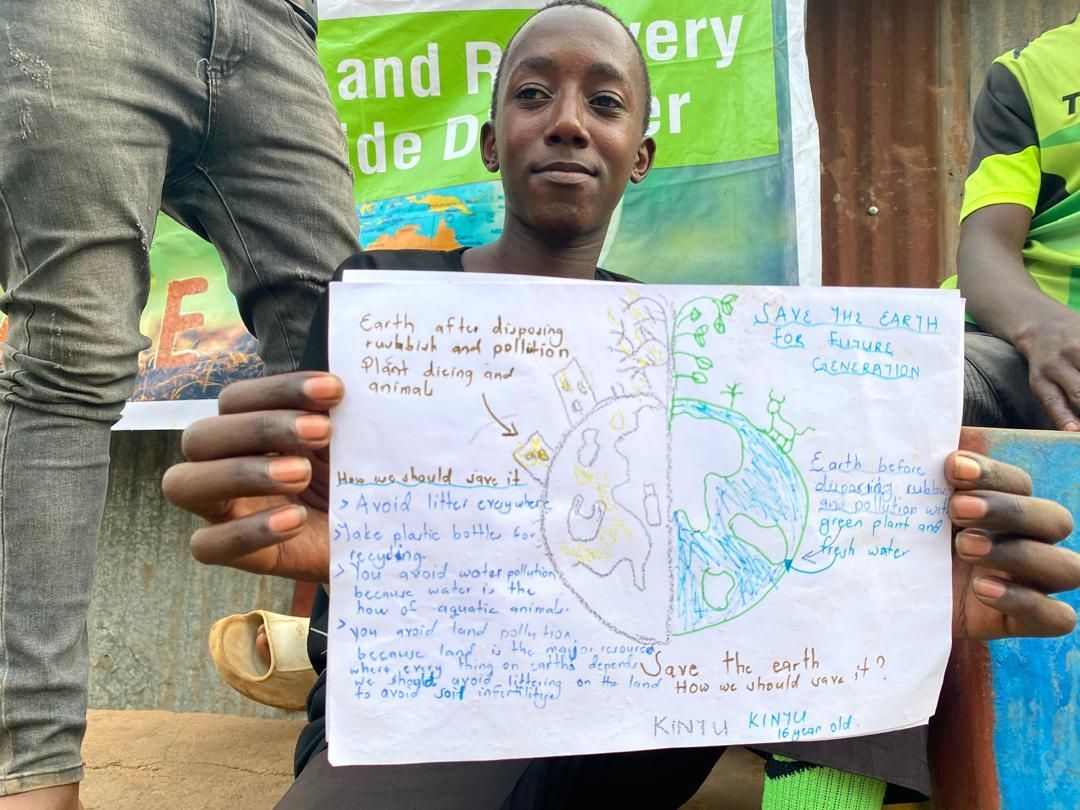 and R very
ide D er
E
T
Earth after disposing
ruwbbish and pollition
Plant dieing and
animal
SAVE THE EARTH
FOR FUTURE
GENERATION
How we should save it
> Avoid litter everywhere
> Take plastic bottles for
recycling.
> You avoid water pollution
because water is the
how of aquatic animals.
> you avoid land pollution,
because land is the major resource
where every thing on earths depends
we should avoid littering on the land
to avoid soil infertilitye
Earth before
disposing rubbi
and pollution wit
green plant and
fresh water
Save the earth
How we should save it?
KINYU KINYU
16 year old.